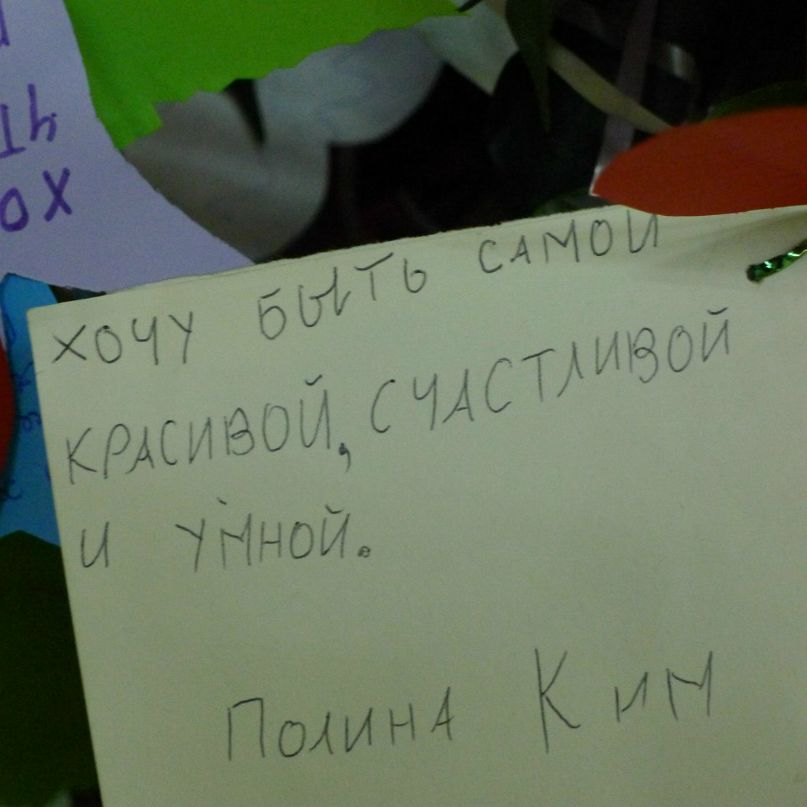 ХОЧУ БЫТЬ САМОЙ
КРАСИВОЙ, СЧАСТЛИВОЙ
И УМНОЙ.
Полина Ким